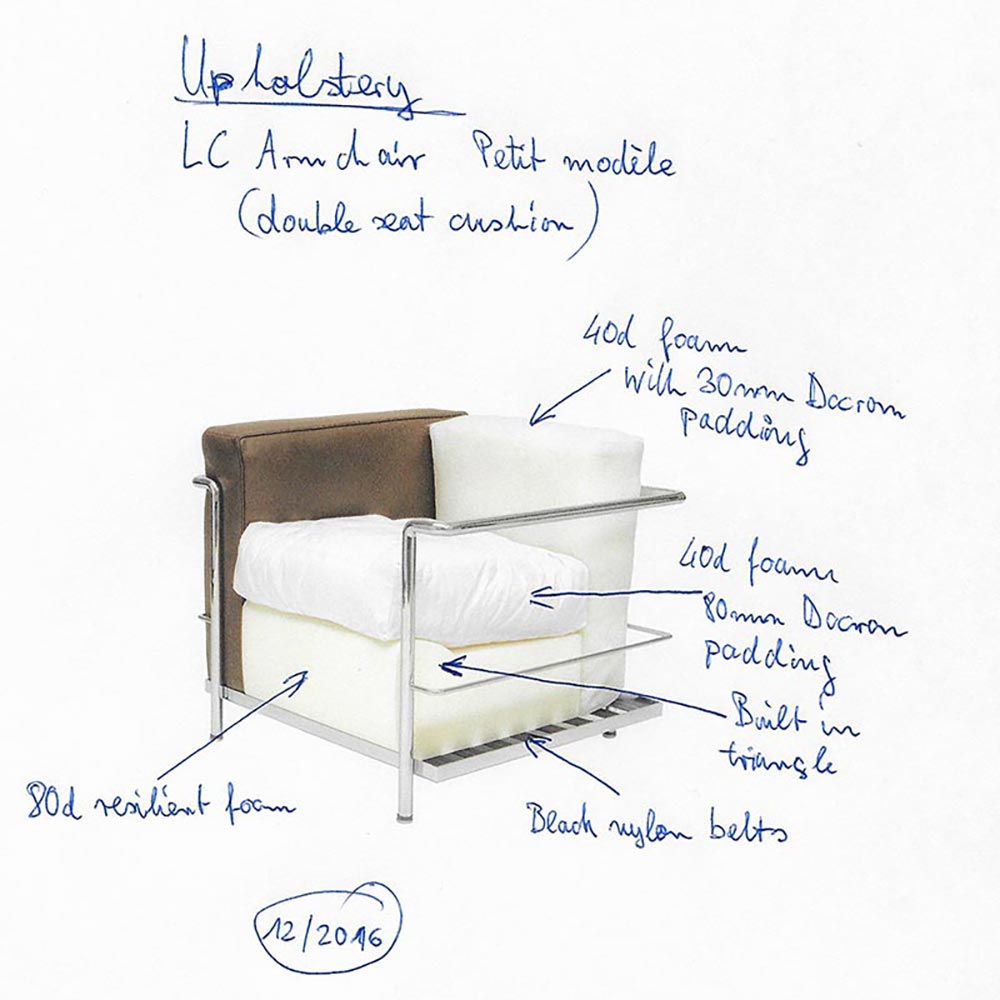 Upholstery
LC Armchair Petit modèle
(double seat cushion)
40d foam
with 30mm Dacron
padding
40d foam
80mm Dacron
padding
Built in
triangle
80d resilient foam
Black nylon belts
12/2016